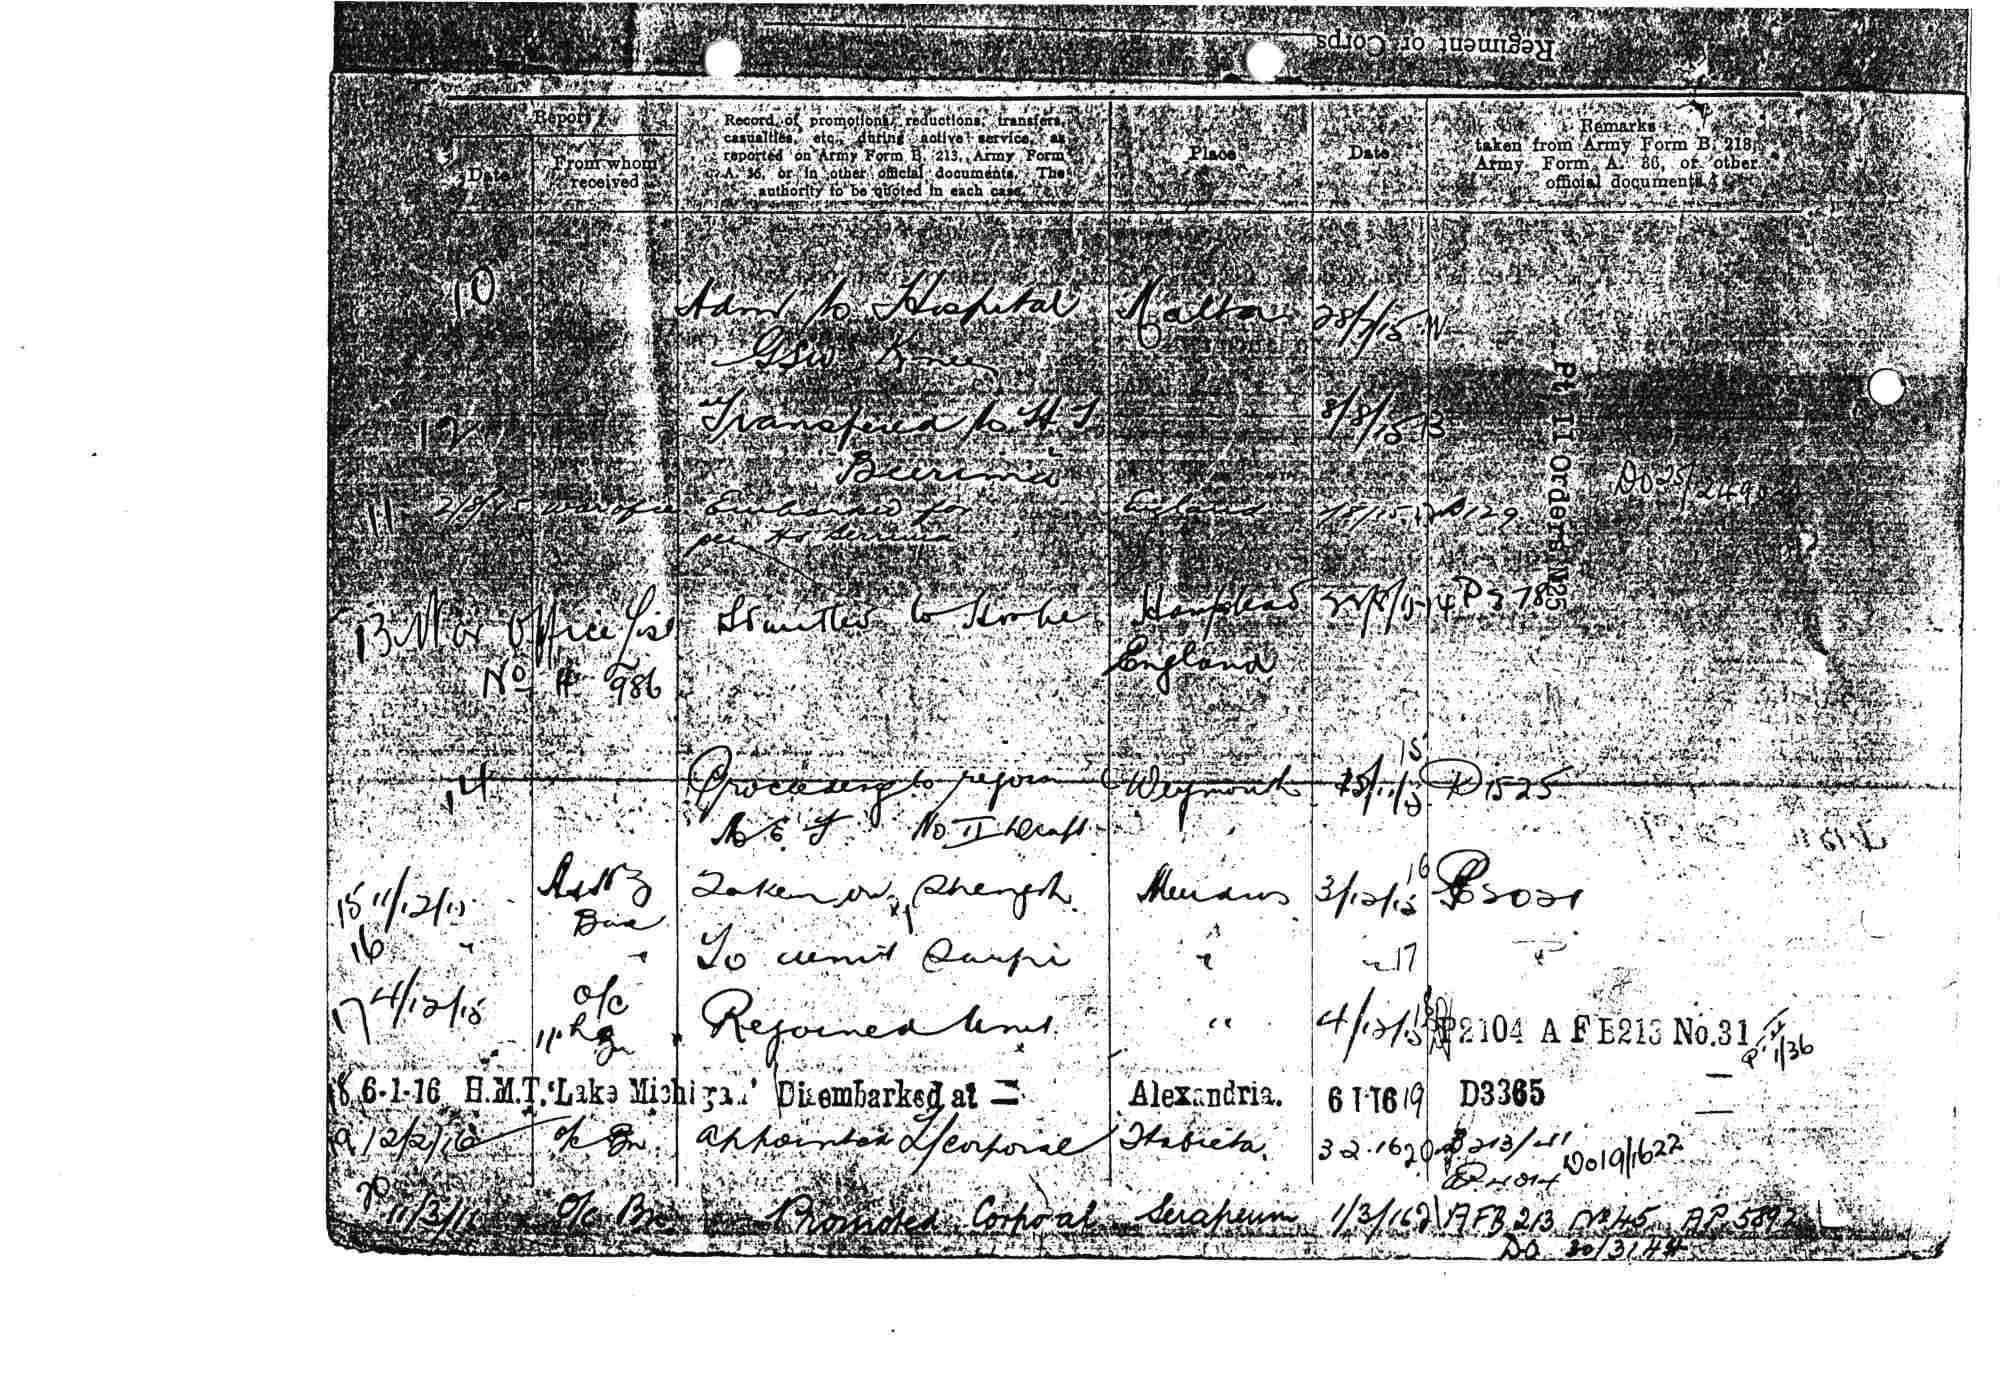 Regiment or Corps
Report
Date
From whom
received
Record of promotions, reductions, transfers,
casualties, etc., during active service, as
reported on Army Form B. 213, Army Form
A. 36, or in other official documents. The
authority to be quoted in each case.
Place
Date
Remarks
taken from Army Form B. 213,
Army Form A. 36, or other
official documents.
10 Adm to Hospital Malta 28/7/15
GSW Knee
12 Transferred to H.S. 8/8/15
Berrima
11 2/8/15 War Office Embarked for England 7/8/15 B129
per HS Berrima
Pt II Orders N25
Do 25/2490
13 War Office List Admitted to Hampstead
No H 7986 England
14 Proceeding to rejoin Weymouth 15/11/15 D1525
M E F No II Draft
15 11/12/15 Taken on Strength Mudros 3/12/15
Base
16 " " To unit Sarpi "
17 4/12/15 O/C Rejoined Unit " 4/12/15 P2104 A F B213 No.31
11th Bn
18 6-1-16 H.M.T. 'Lake Michigan' Disembarked at = Alexandria. 6 1 16 19 D3365
19 12/2/16 O/C Bn. Appointed L/Corporal Habieta. 3 2.16 20 B213/41 Do19/1622
P4014
20 11/3/16 O/C Bn Promoted Corporal Serapeum 1/3/16 21 AFB 213 No 45 AP.5892
DO 20/3144